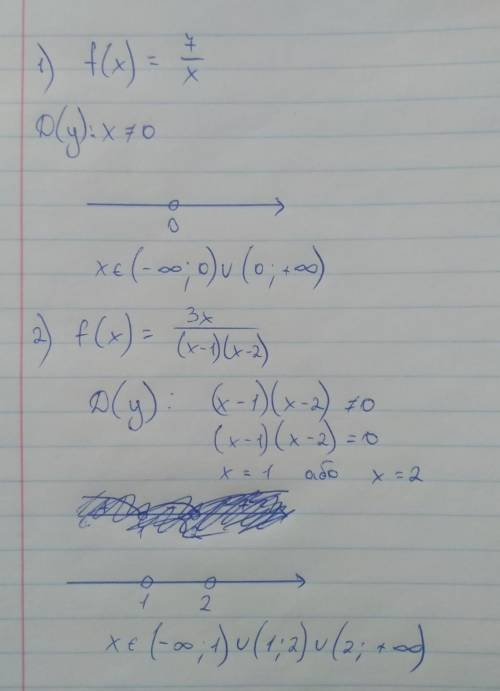 1) f(x) = 7/x
D(y): x ≠ 0
0
x ∈ (-∞; 0) ∪ (0; +∞)
2) f(x) = 3x/((x-1)(x-2))
D(y): (x-1)(x-2) ≠ 0
(x-1)(x-2) = 0
x = 1 або x = 2
1 2
x ∈ (-∞; 1) ∪ (1; 2) ∪ (2; +∞)